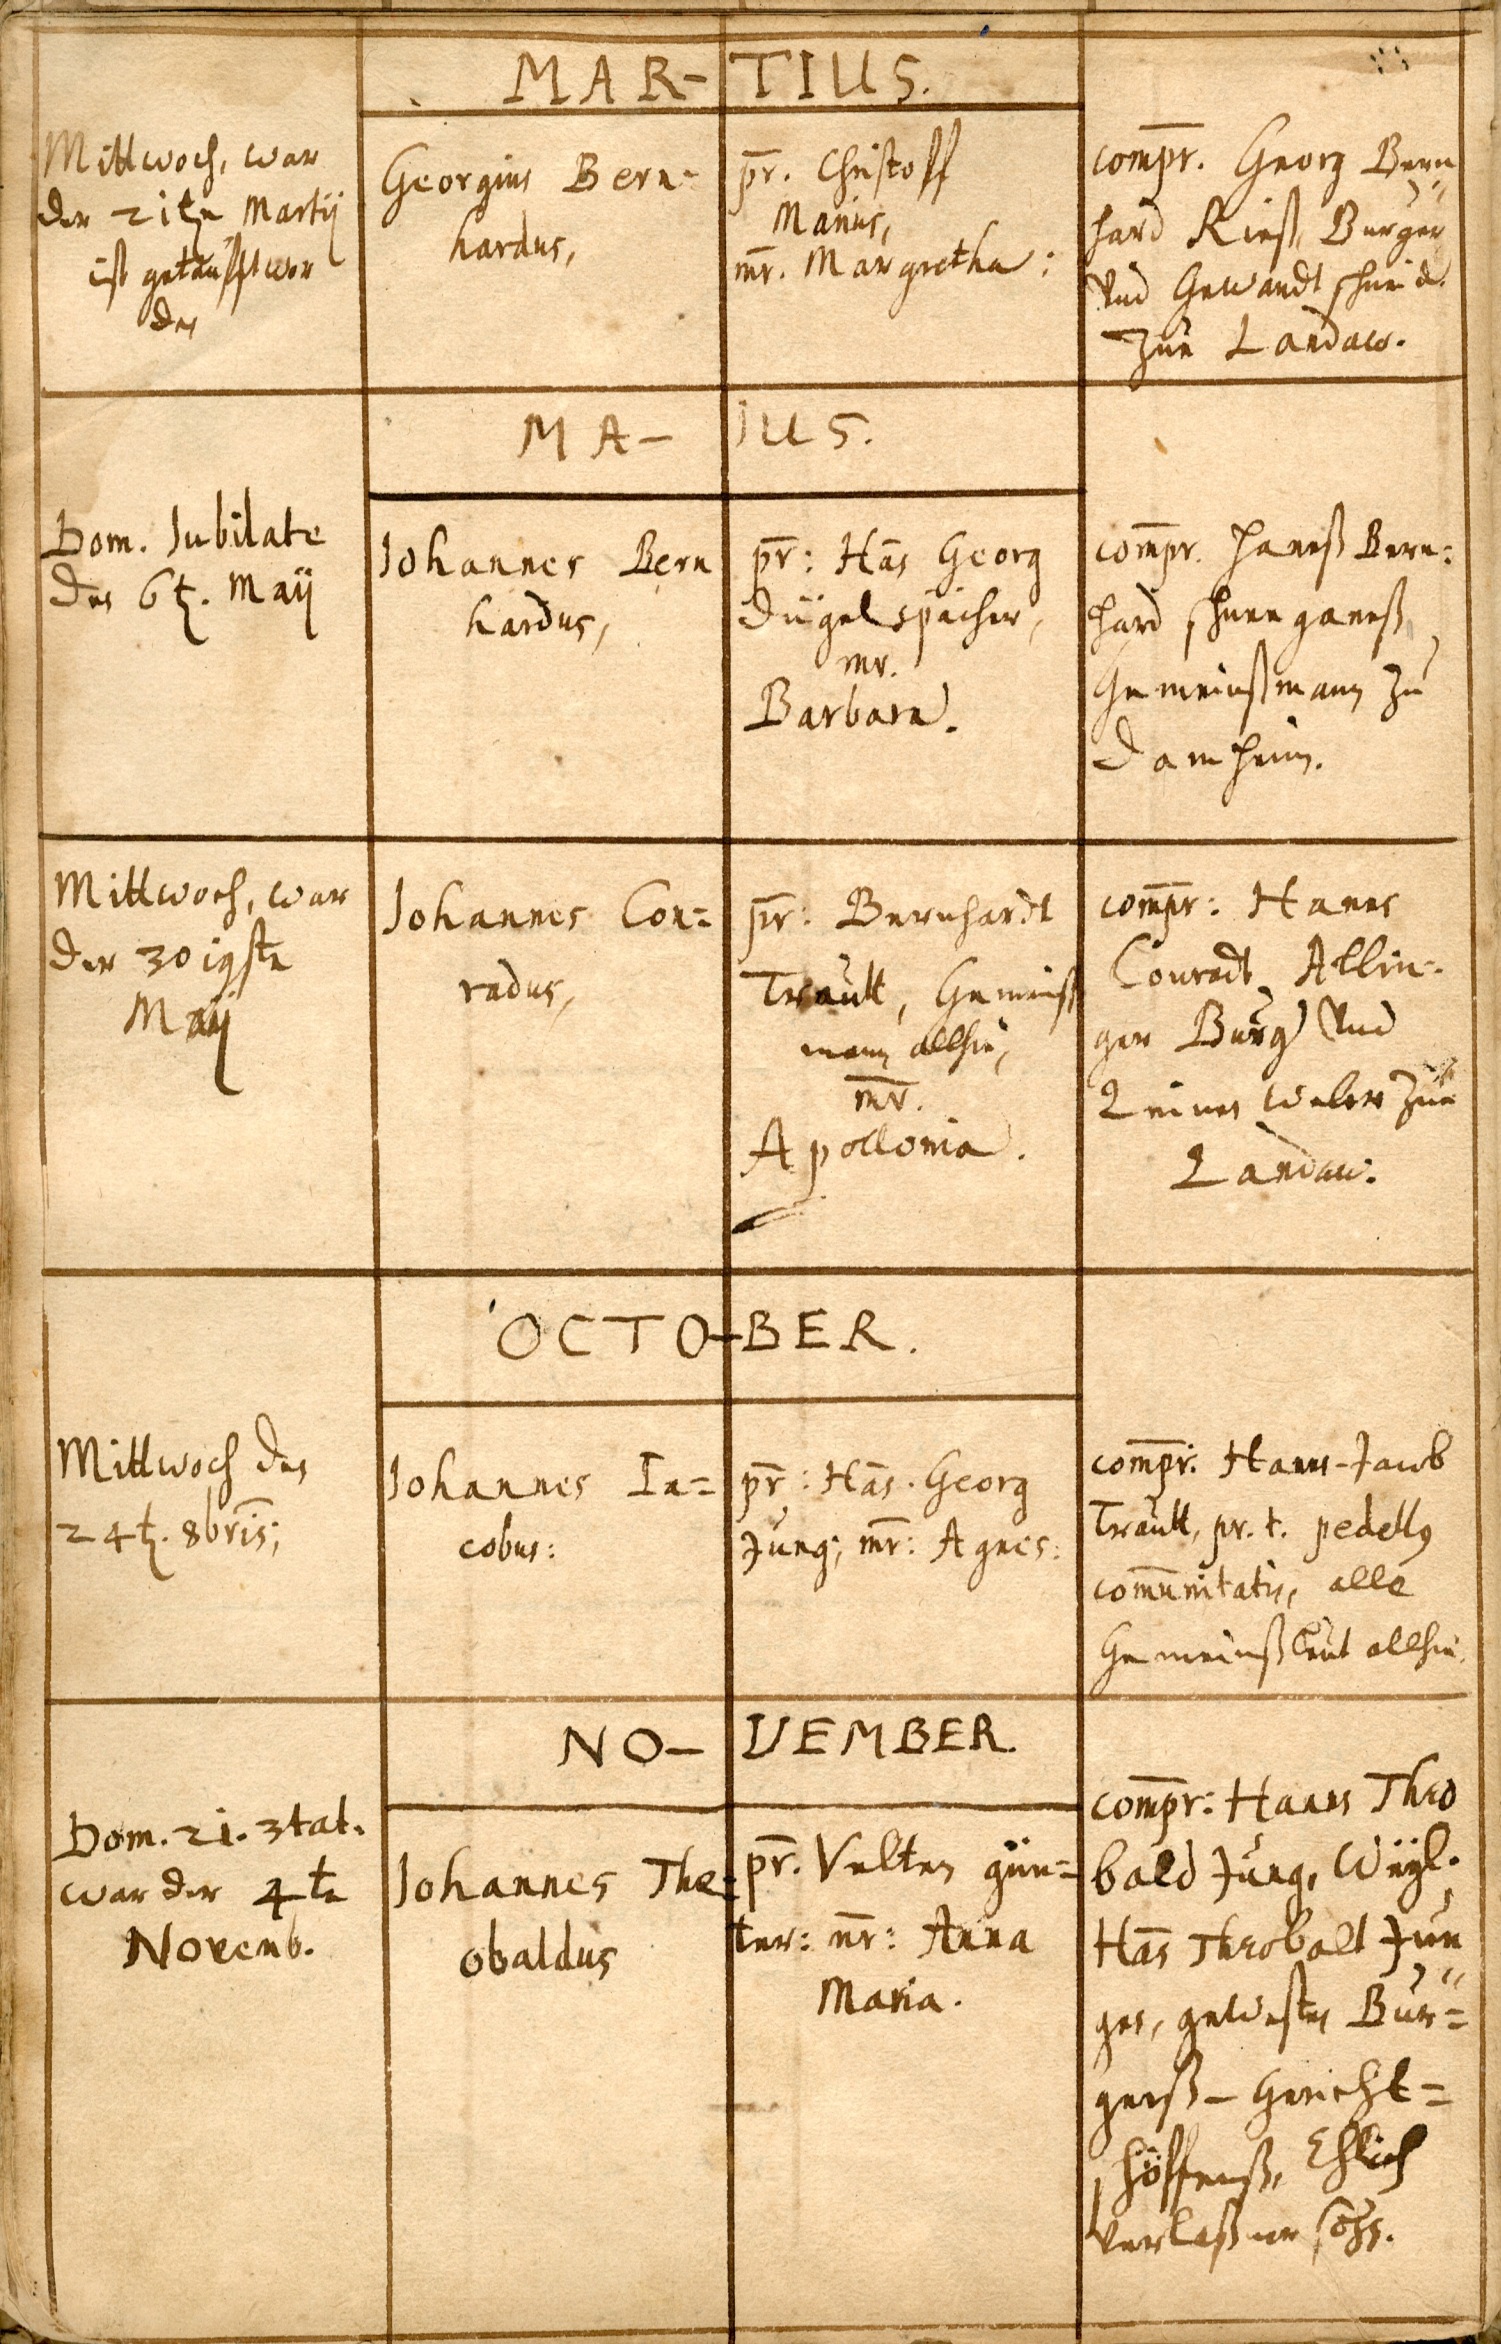 MAR- TIUS.
Mittwoch, war
der 21te Martij
ist getaufft wor
den
Georgius Bern-
hardus,
pr. Christoff
Manus,
mr. Margretha:
compr. Georg Bern
hard Rieß, Burger
Vnd Gewandtschneid.
zue Landaw.
MA- IUS.
Dom. Iubilate
den 6t. Maij
Iohannes Bern
hardus,
pr: Hās Georg
Dügelspächer,
mr.
Barbara.
compr. Hanß Bern:
hard
Gemeinßmann zu
Damheim.
Mittwoch, war
der 30igste
Maij
Iohannes Con=
radus,
pr: Bernhardt
Trault, Gemeinß
mann allhie,
mr.
Apollonia.
compr: Hanns
Conradt Allin-
ger Burg Vnd
Leinenweber zue
Landau.
OCTO-BER.
Mittwoch den
24t. 8bris;
Iohannes Ia=
cobus:
pr: Hās. Georg
Jung; mr: Agnes:
compr. Hanns-Jacob
Trault, pr. t. pedell9
comunitatis, alle
Gemeinßleut allhie.
NO- VEMBER.
Dom. 21. 3tat.
war der 4te
Novemb.
Iohannes The-
obaldus
pr. Velten gün=
ter: mr: Anna
Maria.
compr: Hanns Theo
bald Jung, Weyl.
Hās Theobalt Jun
ges, gewesten Bur=
gerß- Gericht=
schöffenß, Ehlich
Verlaßner sohn.